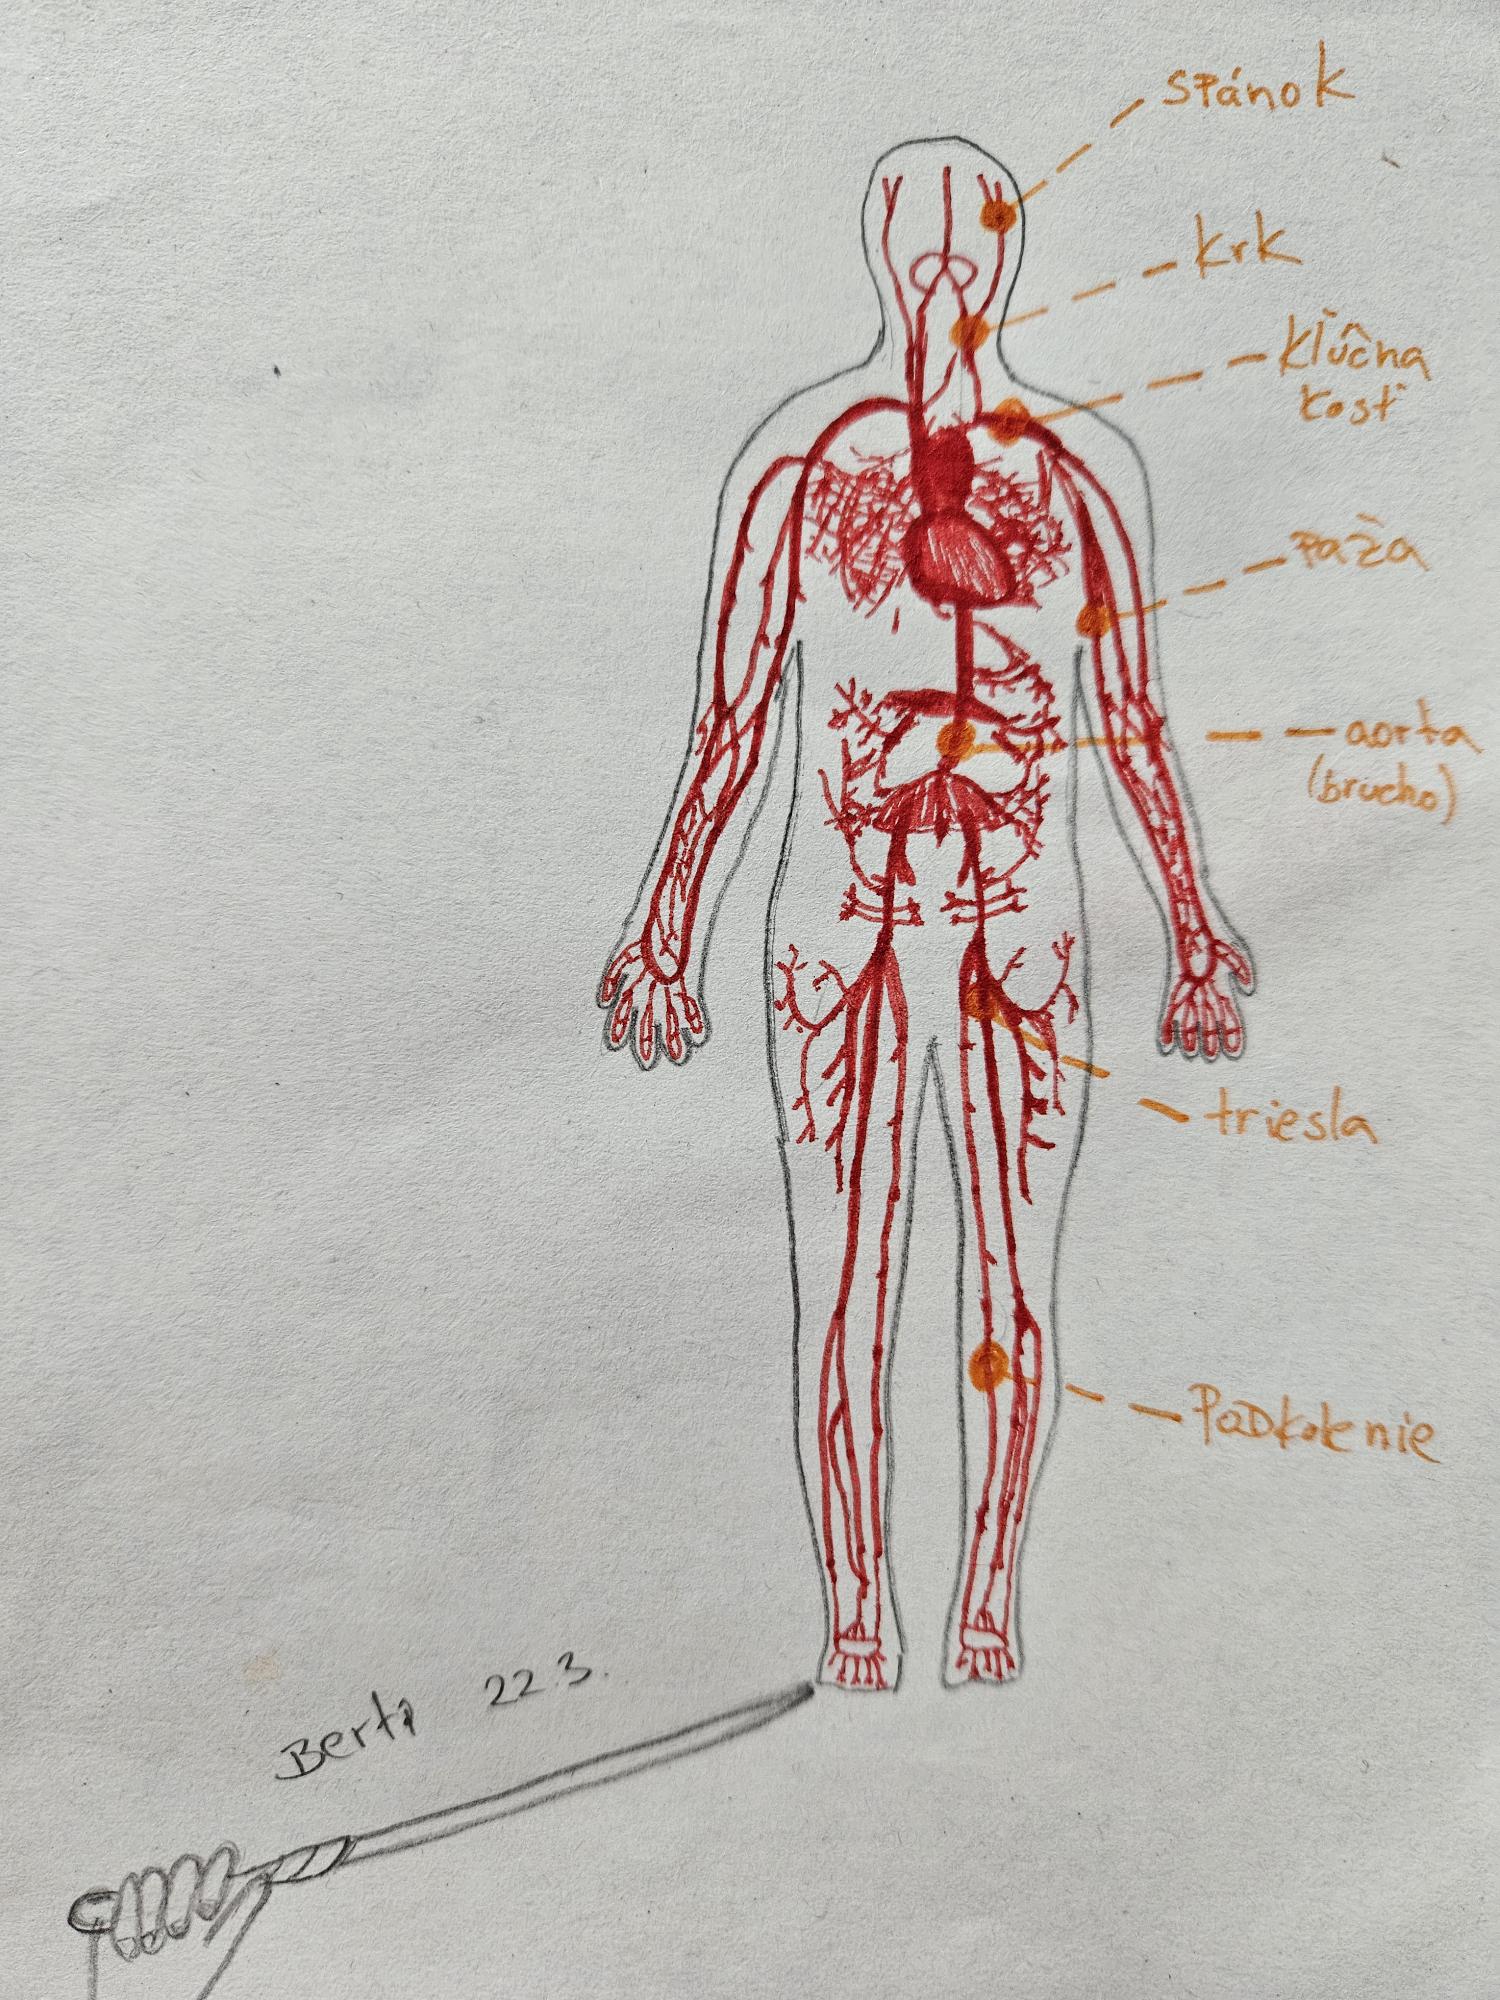 spánok
krk
kľúčna
kosť
Paža
aorta
(brucho)
triesla
Podkolenie
22.3.